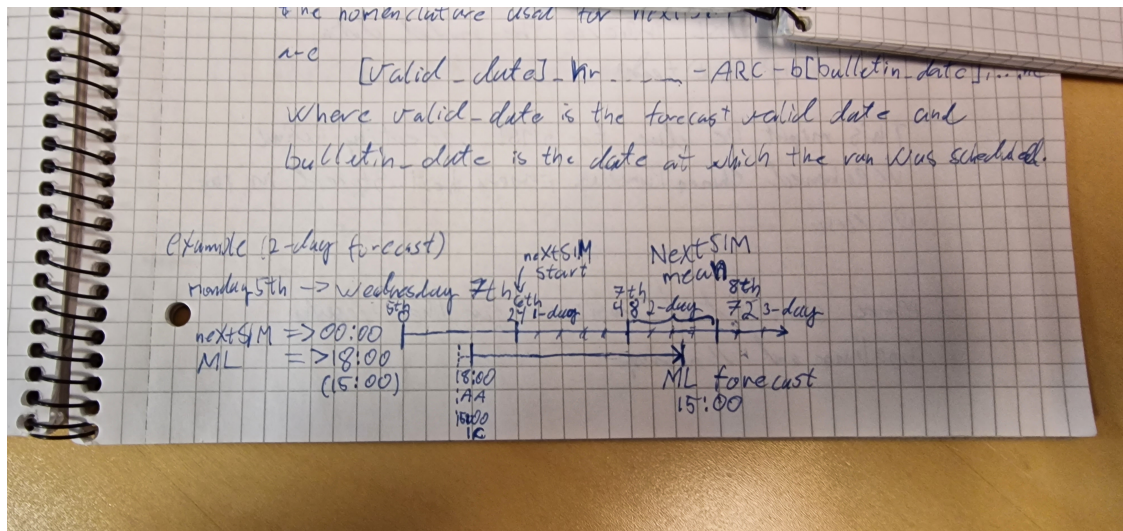 the nomenclature used for nextSIM
are
[valid_date]_hr_____-ARC-b[bulletin_date]....nc
where valid_date is the forecast valid date and
bulletin_date is the date at which the run was scheduled.
example (2-day forecast)
monday 5th -> Wednesday 7th
nextSIM => 00:00
ML => 18:00
(15:00)
nextSIM
start
NextSIM
mean
5th 6th 7th 8th
24 1-day 48 2-day 72 3-day
18:00
AA
15:00
IC
ML forecast
15:00